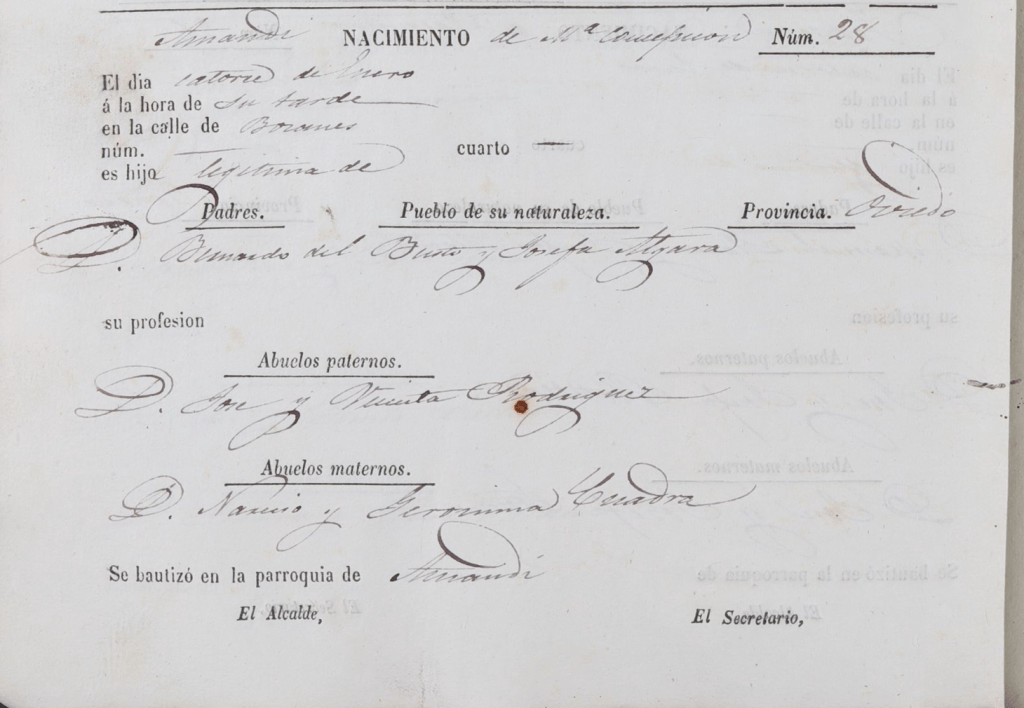 Amandi NACIMIENTO de Mª Concepcion Núm. 28
El dia catorce de Enero
á la hora de su tarde
en la calle de
núm. cuarto
es hijo legitima de
Padres. Pueblo de su naturaleza. Provincia. Oviedo
D. Bernardo del Busto y Josefa Algara
su profesion
Abuelos paternos.
D. Jose y Vicenta Rodriguez
Abuelos maternos.
D. Narciso y Geronima Cuadra
Se bautizó en la parroquia de Amandi
El Alcalde, El Secretario,